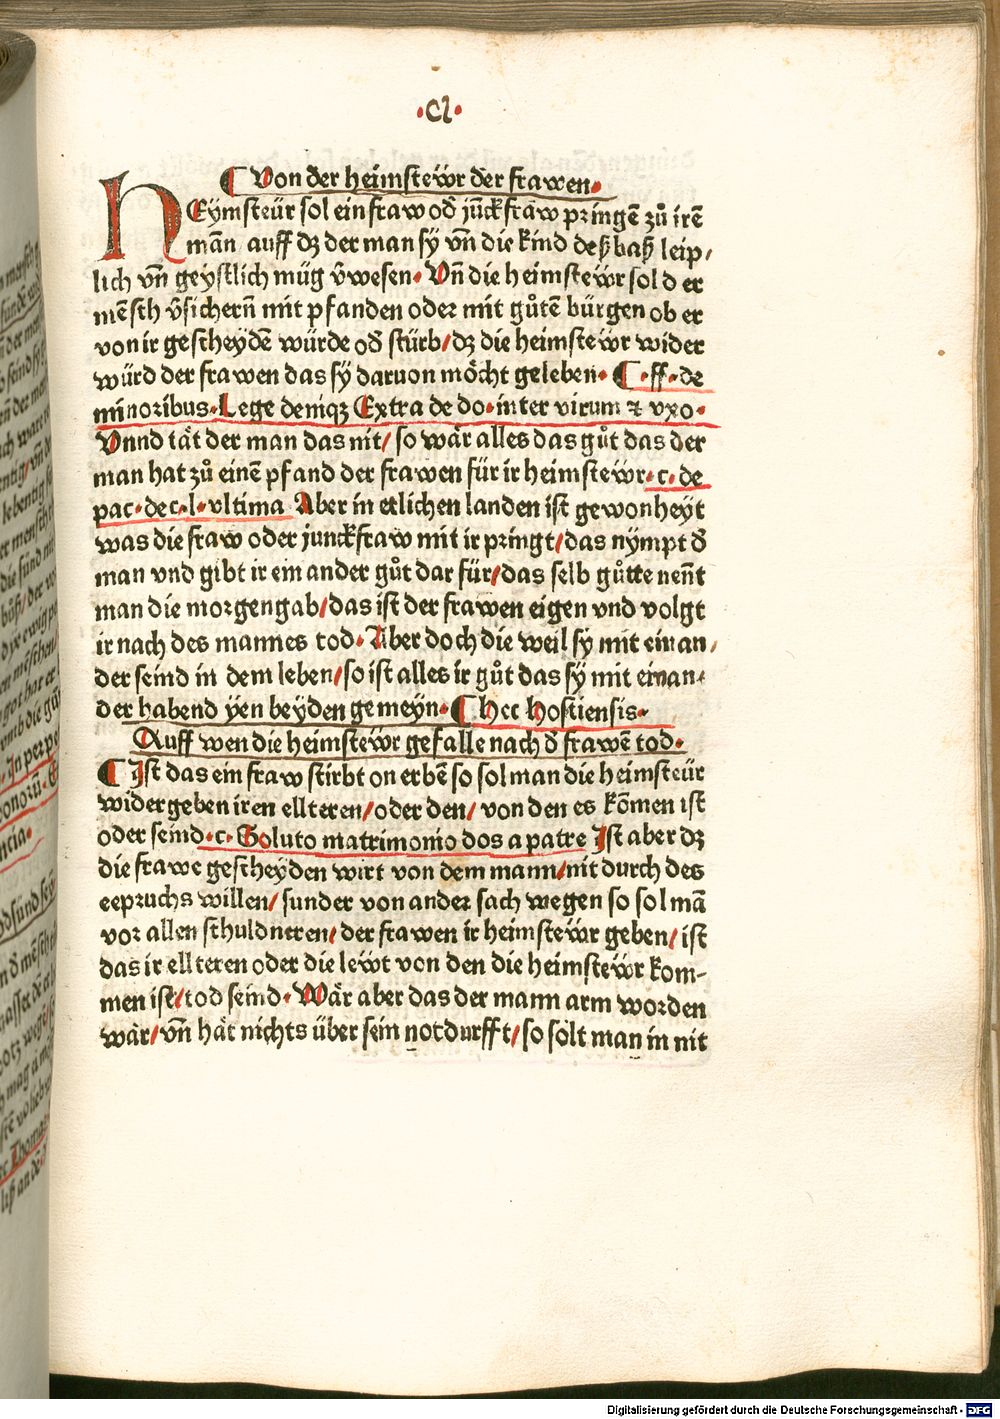 ·Cl·
Von der heimsteẅr der frawen·
HEymsteür sol ein fraw oď jūckfraw pꝛingē zů irē
mān auff dz der man sy vn̄ die kind deßbaß leip/
lich vn̄ geystlich müg v̄wesen· Vn̄ die heimsteẅr sol der
mēsch v̄sichern̄ mit pfanden odeꝛ mit gůtē bürgen ob er
von ir gescheydē würde oď stürb/ dz die heimsteẅr wider
würd der frawen das sÿ daruon möcht geleben· ·ff·de
minoꝛibus·Lege deniqz Extra de do·inter virum ⁊ vxo·
Vnnd tät der man das nit/ so wär alles das gůt das der
man hat zů einē pfand der frawen für ir heimsteẅr·c·de
pac·de c·l·vltima Aber in etlichen landen ist gewonheyt
was die fraw oder junckfraw mit ir pꝛingt/das nÿmpt ď
man vnd gibt ir ein ander gůt dar für/das selb gůtte nen̄t
man die moꝛgengab/das ist der frawen eigen vnd volgt
ir nach des mannes tod· Aber doch die weil sÿ mit einan/
der seind in dem leben/so ist alles ir gůt das sÿ mit einan/
der habend ÿen beyden gemeyn· Hec Hostiensis·
Auff wen die heimsteẅr gefalle nach ď frawē tod·
Ist das ein fraw stirbt on erbē so sol man die heimsteür
widergeben iren ellteren/oder den/ von den es kōmen ist
oder seind·c·Soluto matrimonio dos a patre Ist aber dz
die frawe gescheyden wirt von dem mann/nit durch des
eepꝛuchs willen/ sunder von andeꝛ sach wegen so sol mā
voꝛ allen schuldneren/ der frawen ir heimsteẅr geben/ ist
das ir ellteren oder die leẅt von den die heimsteẅr kom-
men ist/tod seind· Wär aber das der mann arm woꝛden
wär/ vn̄ hät nichts über sein notdurfft/ so solt man in nit
Digitalisierung gefördert durch die Deutsche Forschungsgemeinschaft - DFG